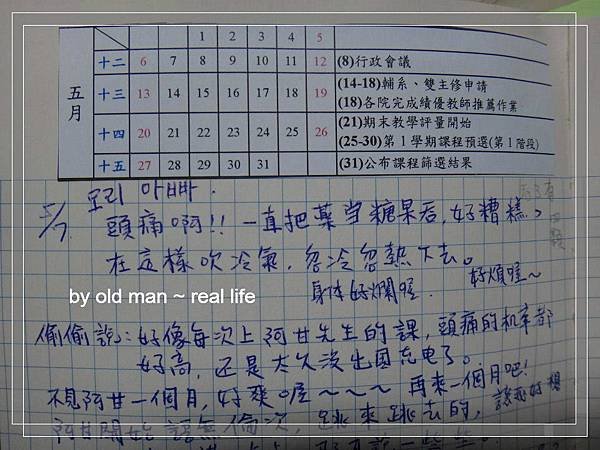 1 2 3 4 5
十二 6 7 8 9 10 11 12 (8)行政會議
五月 十三 13 14 15 16 17 18 19 (14-18)輔系、雙主修申請
(18)各院完成績優教師推薦作業
十四 20 21 22 23 24 25 26 (21)期末教學評量開始
(25-30)第1學期課程預選(第1階段)
十五 27 28 29 30 31 (31)公布課程篩選結果
우리 아빠.
5/7 頭痛啊!! 一直把藥當糖果吞,好糟糕,
在這樣吹冷氣,忽冷忽熱下去。
身体好爛喔. 好煩喔~
by old man ~ real life
偷偷說:好像每次上阿甘先生的課,頭痛的机率都
好高,还是太久沒出國充电了。
不見阿甘一個月,好爽喔~~~~ 再來一個月吧!
阿甘開始語無倫次,跳來跳去的,